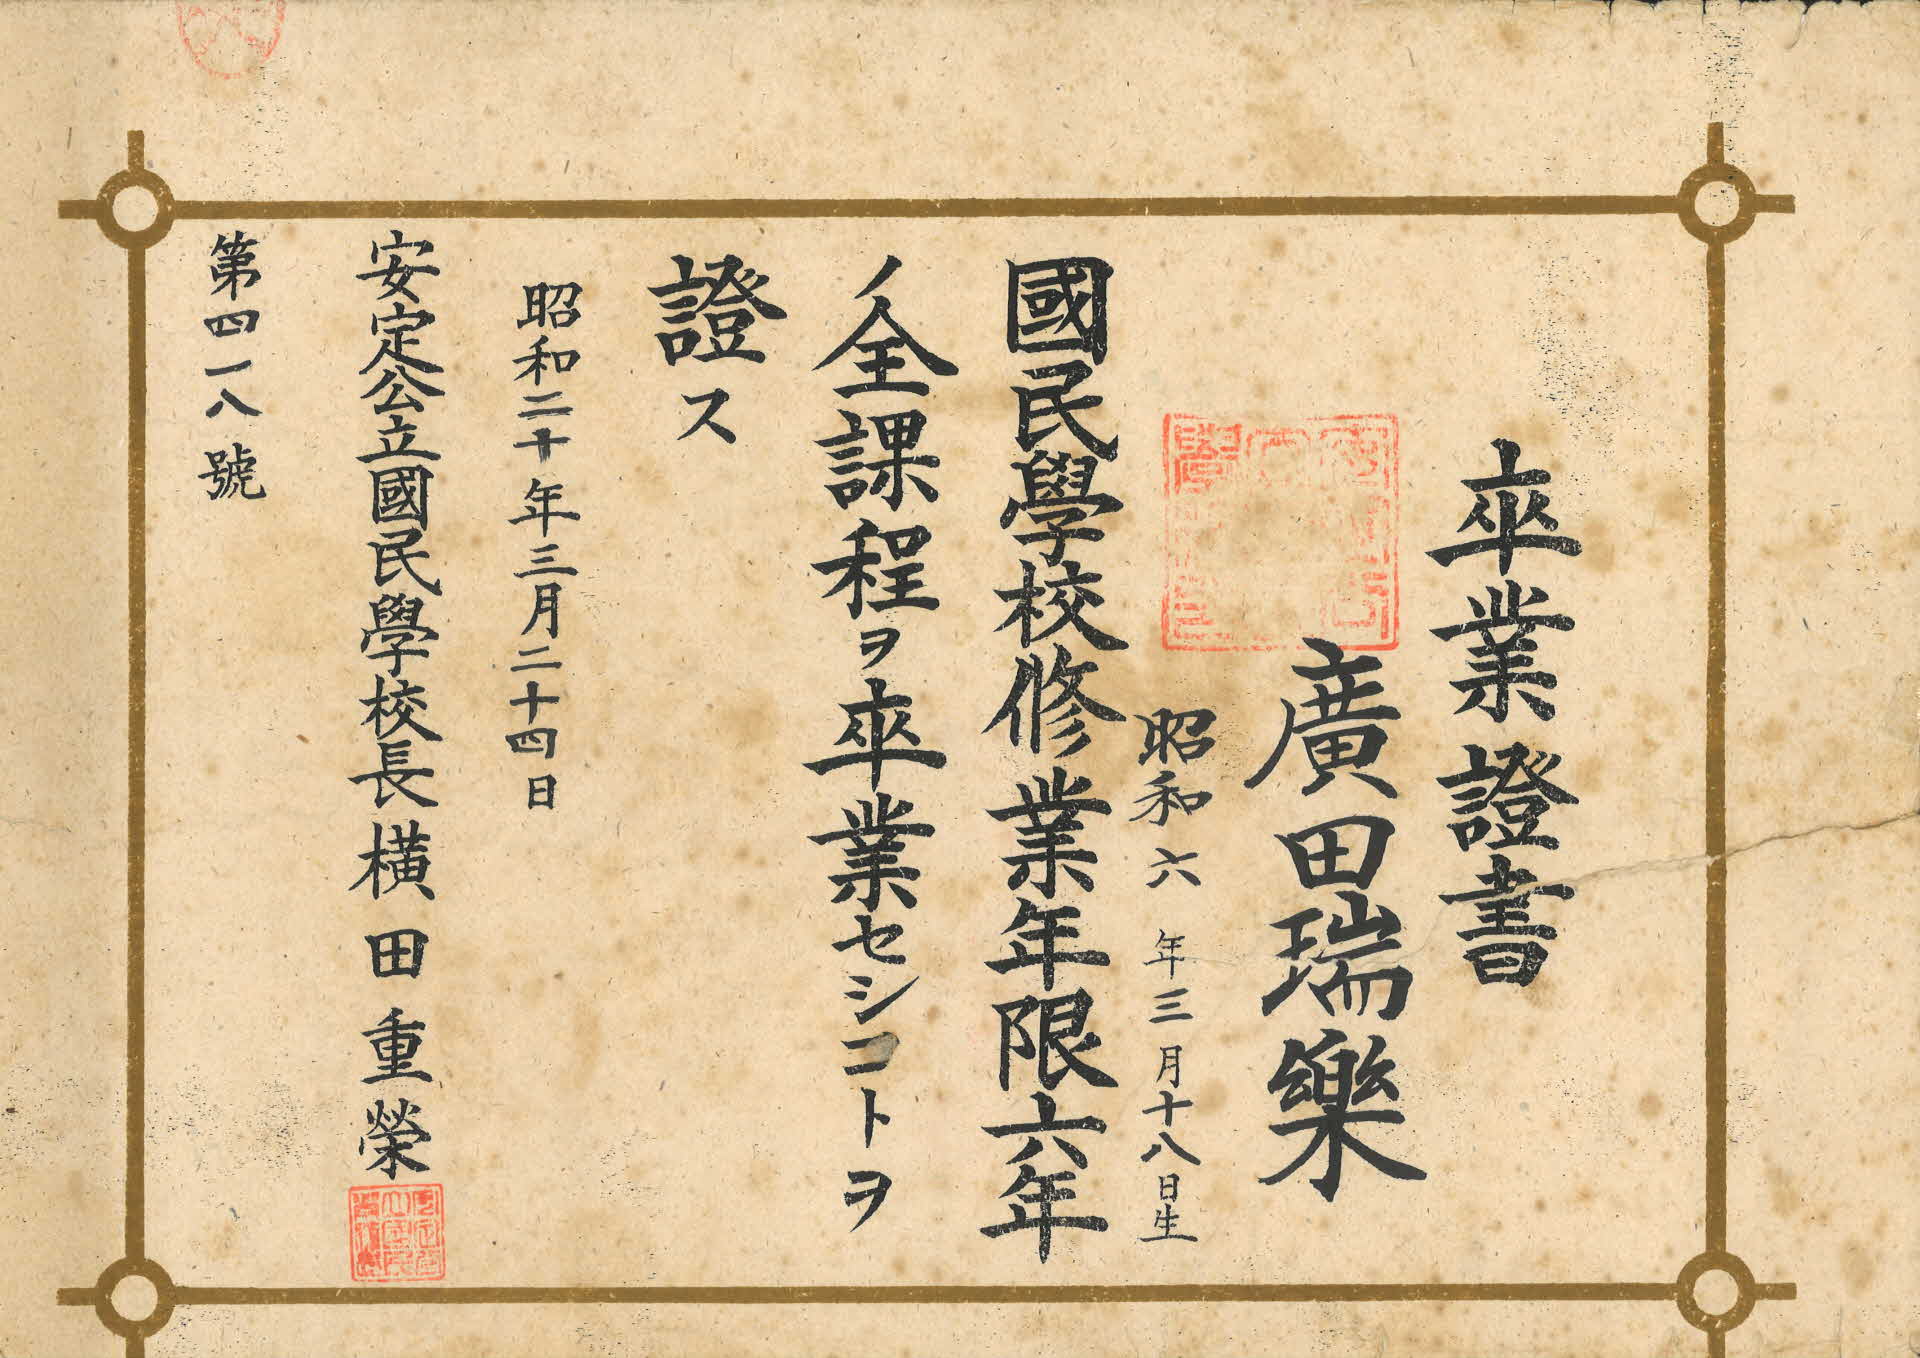 卒業證書
廣田瑞樂
昭和六年三月十八日生
國民學校修業年限六年
ノ全課程ヲ卒業セシコトヲ
證ス
昭和二十年三月二十四日
安定公立國民學校長橫田重榮
第四一八號